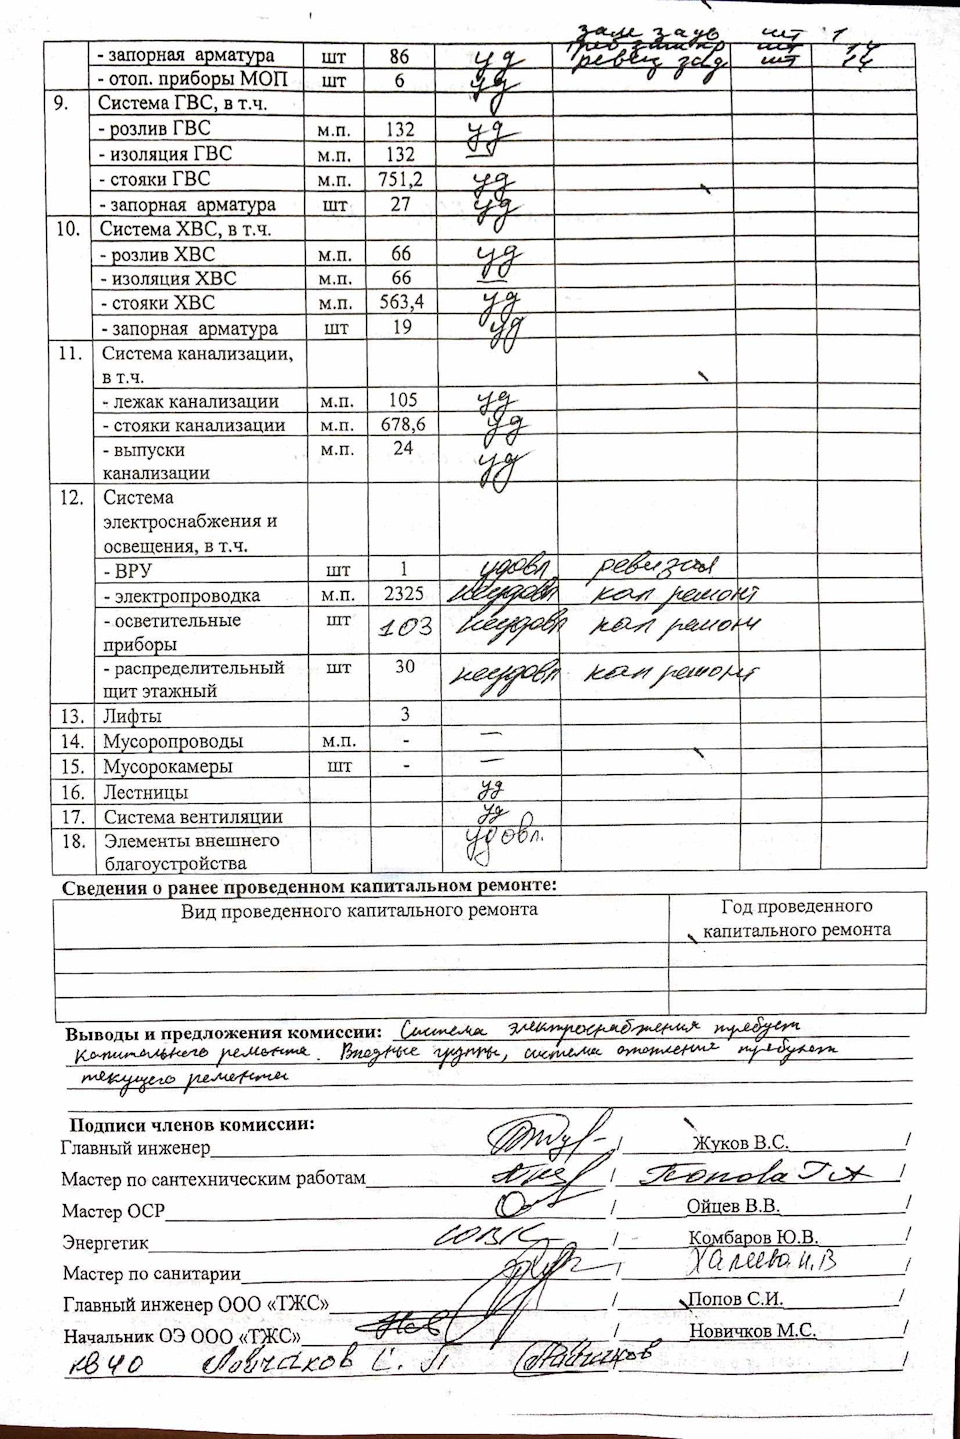 зам задв шт 1
- запорная арматура шт 86 уд ревиз зад шт 14
- отоп. приборы МОП шт 6 уд
9. Система ГВС, в т.ч.
- розлив ГВС м.п. 132 уд
- изоляция ГВС м.п. 132 —
- стояки ГВС м.п. 751,2 уд
- запорная арматура шт 27 уд
10. Система ХВС, в т.ч.
- розлив ХВС м.п. 66 уд
- изоляция ХВС м.п. 66 —
- стояки ХВС м.п. 563,4 уд
- запорная арматура шт 19 уд
11. Система канализации,
в т.ч.
- лежак канализации м.п. 105 уд
- стояки канализации м.п. 678,6 уд
- выпуски м.п. 24 уд
канализации
12. Система
электроснабжения и
освещения, в т.ч.
- ВРУ шт 1 удовл ревизия
- электропроводка м.п. 2325 неудовл кап ремонт
- осветительные шт 103 неудовл кап ремонт
приборы
- распределительный шт 30 неудовл кап ремонт
щит этажный
13. Лифты 3
14. Мусоропроводы м.п. - —
15. Мусорокамеры шт - —
16. Лестницы уд
17. Система вентиляции уд
18. Элементы внешнего удовл.
благоустройства
Сведения о ранее проведенном капитальном ремонте:
Вид проведенного капитального ремонта Год проведенного
капитального ремонта
Выводы и предложения комиссии: Система электроснабжения требует
капитального ремонта. Входные группы, система отопления требуют
текущего ремонта
Подписи членов комиссии:
Главный инженер / Жуков В.С. /
Мастер по сантехническим работам / Попова Г А /
Мастер ОСР / Ойцев В.В. /
Энергетик / Комбаров Ю.В. /
Мастер по санитарии / Халеева И.В /
Главный инженер ООО «ТЖС» / Попов С.И. /
Начальник ОЭ ООО «ТЖС» / Новичков М.С. /
С. П /